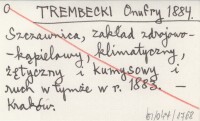 TREMBECKI Onufry 1884.
Szczawnica, zakład zdrojowo-
-kąpielowy, klimatyczny,
żętyczny i kumysowy i
ruch w tymże w r. 1883. –
Kraków.